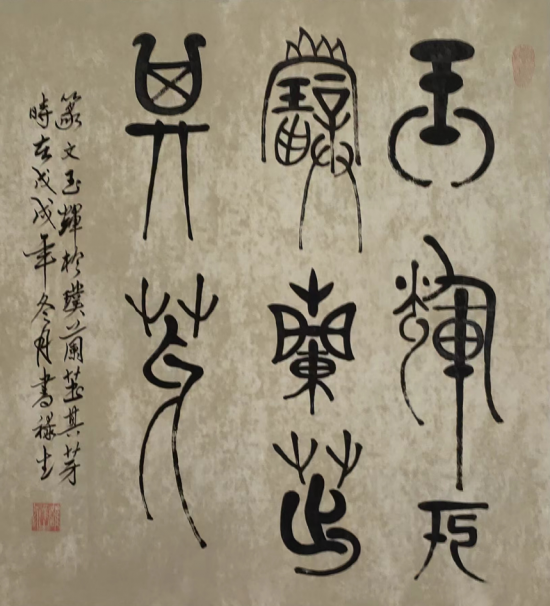 玉輝於
璞蘭茁
其芽
篆文玉輝於璞蘭茁其芽
時在戊戌年冬月書祿